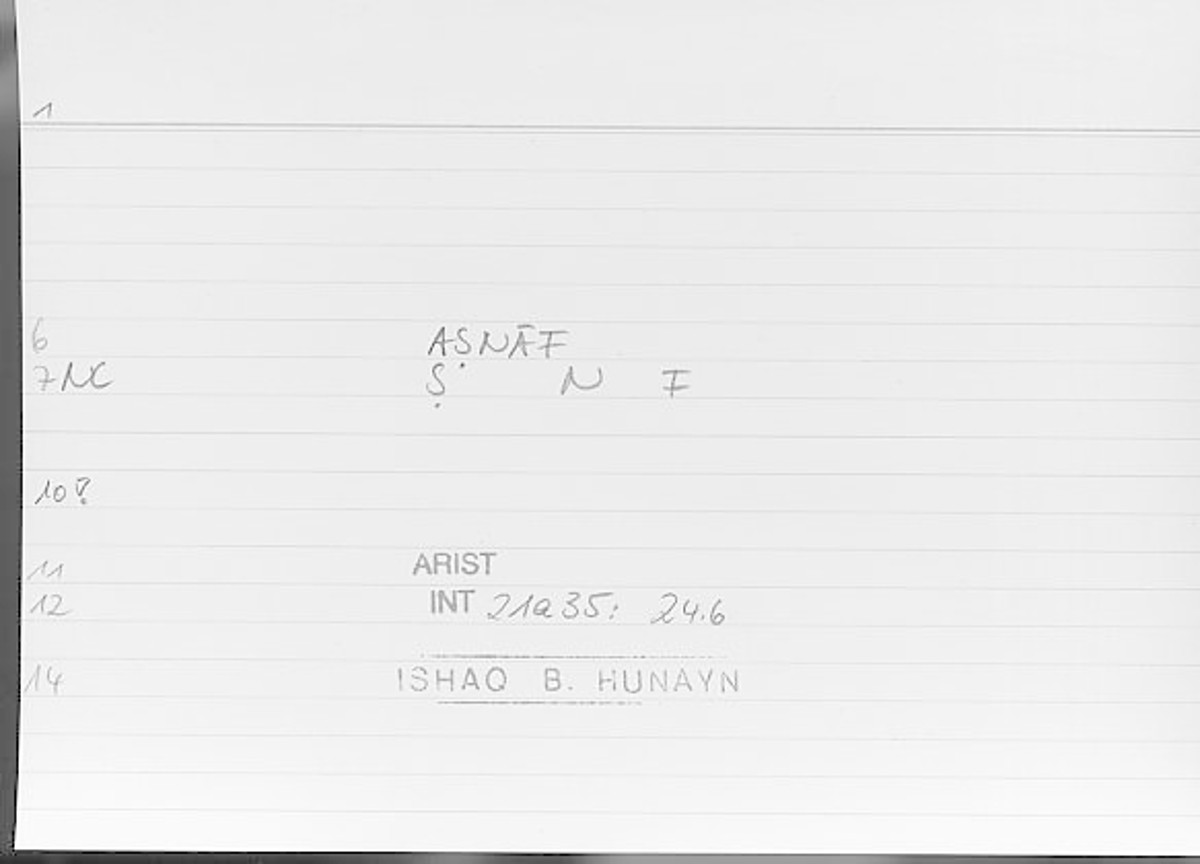 1
6 AṢNĀF
7NC Ṣ N F
10?
11 ARIST
12 INT 21a35: 24.6
14 ISHAQ B. HUNAYN